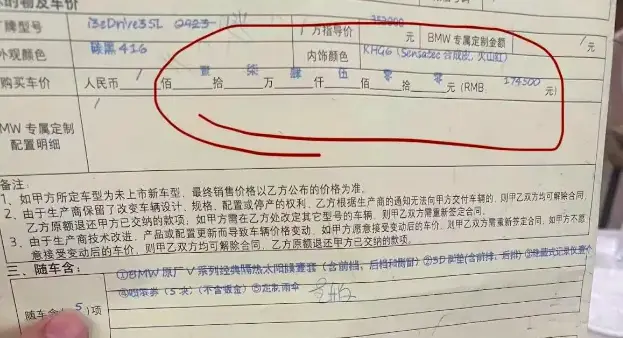 的物及车价
厂牌型号 i3eDrive35L 2023 厂方指导价 353900 元 BMW 专属定制金额 / 元
外观颜色 碳黑416 内饰颜色 KHG6 (Sensatec 合成皮, 火山红)
购买车价 人民币 / 佰 壹 拾 柒 万 肆 仟 伍 佰 零 拾 零 元 (RMB: 174500 元)
MW 专属定制
配置明细 /
备注:
1、如甲方所定车型为未上市新车型,最终销售价格以乙方公布的价格为准。
2、由于生产商保留了改变车辆设计、规格、配置或停产的权利,乙方根据生产商的通知无法向甲方交付车辆的,则甲乙双方均可解除合同,
乙方原额退还甲方已交纳的款项;如甲方需在乙处改定其它型号的车辆,则甲乙双方需重新签定合同。
3、由于生产商技术改进、产品或配置更新而导致车辆价格变动,如甲方愿意接受变动后的车价,则甲乙双方需重新签定合同,如甲方不愿
意接受变动后的车价,则甲乙双方均可解除合同,乙方原额退还甲方已交纳的款项。
三、随车含:
①BMW 原厂 V 系列经典隔热太阳膜壹套(含前档,后档和侧窗)②3D脚垫(含前排,后排)③隐藏式记录仪壹个
(5块)(不含钣金)⑤定制雨伞
随车含(5)项